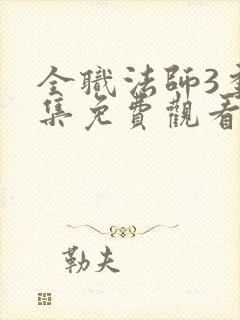 全職法師3季
集免費觀看
勒夫